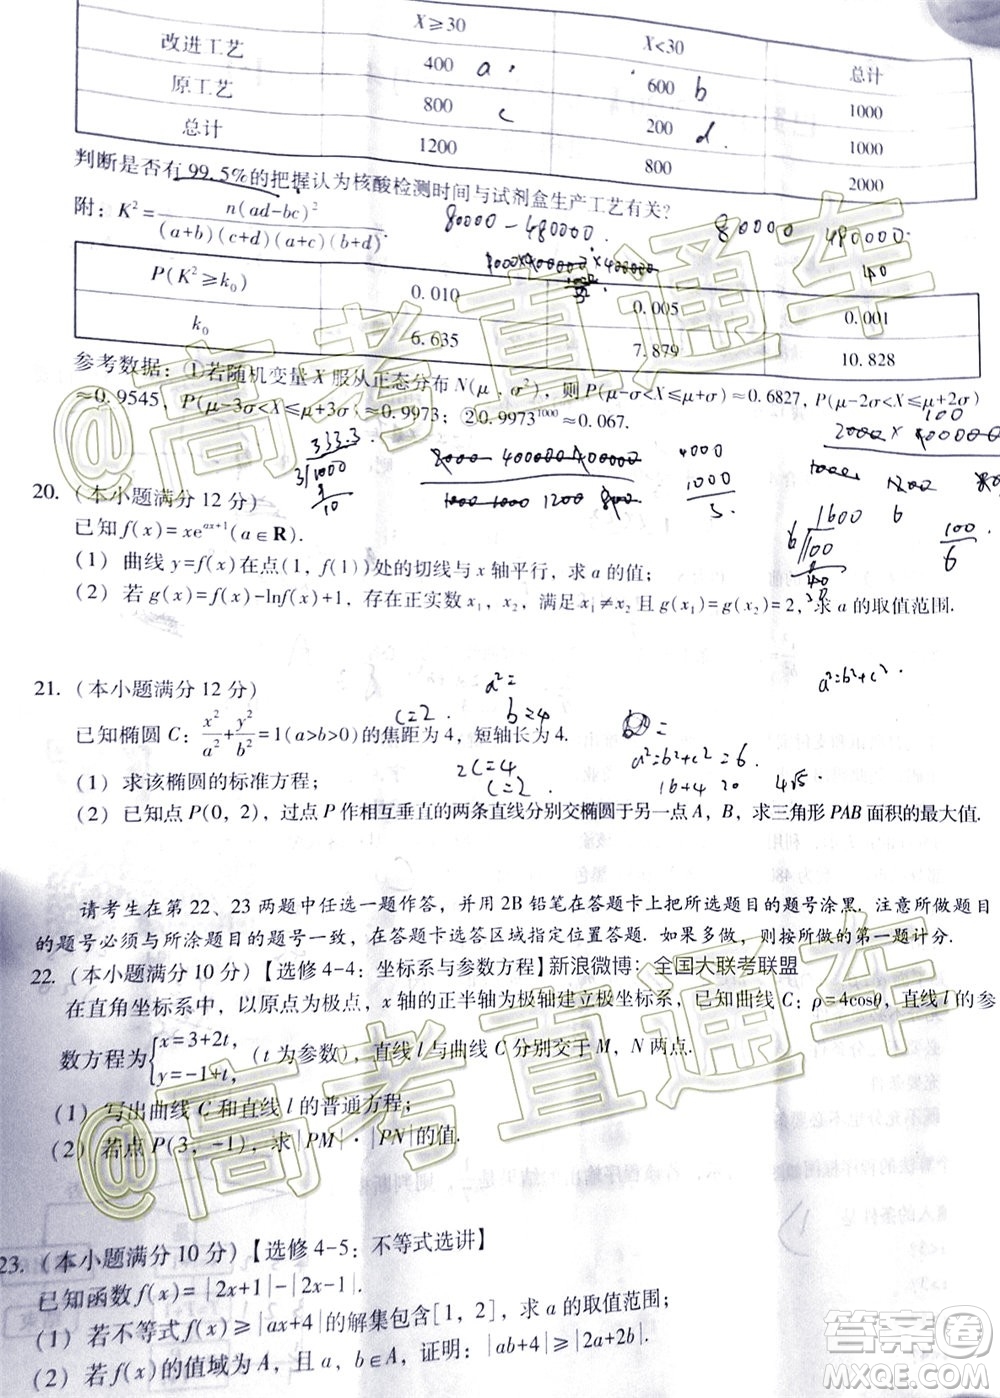 X≥30 X<30 总计
改进工艺 400 a 600 b 1000
原工艺 800 c 200 d 1000
总计 1200 800 2000
判断是否有99.5%的把握认为核酸检测时间与试剂盒生产工艺有关?
附: K²=n(ad-bc)²/(a+b)(c+d)(a+c)(b+d).
80000-480000. 80000 480000
P(K²≥k₀) 0.010 0.005 0.001
k₀ 6.635 7.879 10.828
参考数据: ①若随机变量X服从正态分布N(μ,σ²), 则P(μ-σ<X≤μ+σ)≈0.6827, P(μ-2σ<X≤μ+2σ)
≈0.9545, P(μ-3σ<X≤μ+3σ)≈0.9973; ②0.9973¹⁰⁰⁰≈0.067.
333.3
3 1000
9
10
4000
1000
3
1600
100
6
20. (本小题满分12分)
已知f(x)=xe^{ax+1}(a∈R).
(1) 曲线y=f(x)在点(1, f(1))处的切线与x轴平行, 求a的值;
(2) 若g(x)=f(x)-lnf(x)+1, 存在正实数x₁, x₂, 满足x₁≠x₂且g(x₁)=g(x₂)=2, 求a的取值范围.
21. (本小题满分12分)
a²= a²=b²+c².
c=2. b=4
已知椭圆C: x²/a²+y²/b²=1(a>b>0)的焦距为4, 短轴长为4.
a²=b²+c²=6.
2c=4
c=2. 16+4 20 4√5
(1) 求该椭圆的标准方程;
(2) 已知点P(0, 2), 过点P作相互垂直的两条直线分别交椭圆于另一点A, B, 求三角形PAB面积的最大值.
请考生在第22、23两题中任选一题作答, 并用2B铅笔在答题卡上把所选题目的题号涂黑. 注意所做题目
的题号必须与所涂题目的题号一致, 在答题卡选答区域指定位置答题. 如果多做, 则按所做的第一题计分.
22. (本小题满分10分)【选修4-4: 坐标系与参数方程】新浪微博: 全国大联考联盟
在直角坐标系中, 以原点为极点, x轴的正半轴为极轴建立极坐标系, 已知曲线C: ρ=4cosθ, 直线l的参
数方程为{x=3+2t, y=-1+t, (t为参数), 直线l与曲线C分别交于M, N两点.
(1) 写出曲线C和直线l的普通方程;
(2) 若点P(3, -1), 求|PM|·|PN|的值.
23. (本小题满分10分)【选修4-5: 不等式选讲】
已知函数f(x)=|2x+1|-|2x-1|.
(1) 若不等式f(x)≥|ax+4|的解集包含[1, 2], 求a的取值范围;
(2) 若f(x)的值域为A, 且a, b∈A, 证明: |ab+4|≥|2a+2b|.
@高考直通车
@高考直通车
答案圈
MXQE.COM